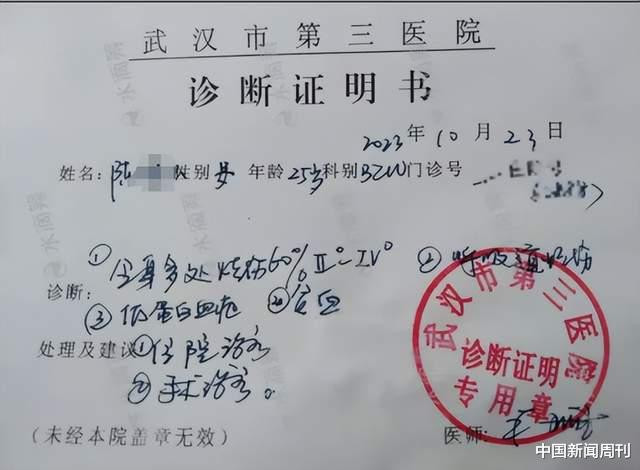 武汉市第三医院
诊断证明书
2023年10月23日
姓名:陈 性别 女 年龄 25岁 科别 BICU 门诊号
诊断: ①全身多处烧伤60% Ⅱ°-Ⅳ° ②呼吸道烧伤
③低蛋白血症 ④贫血
处理及建议 ①住院治疗
②手术治疗。
(未经本院盖章无效) 医师:
武汉市第三医院
诊断证明
专用章
中国新闻周刊
水滴筹